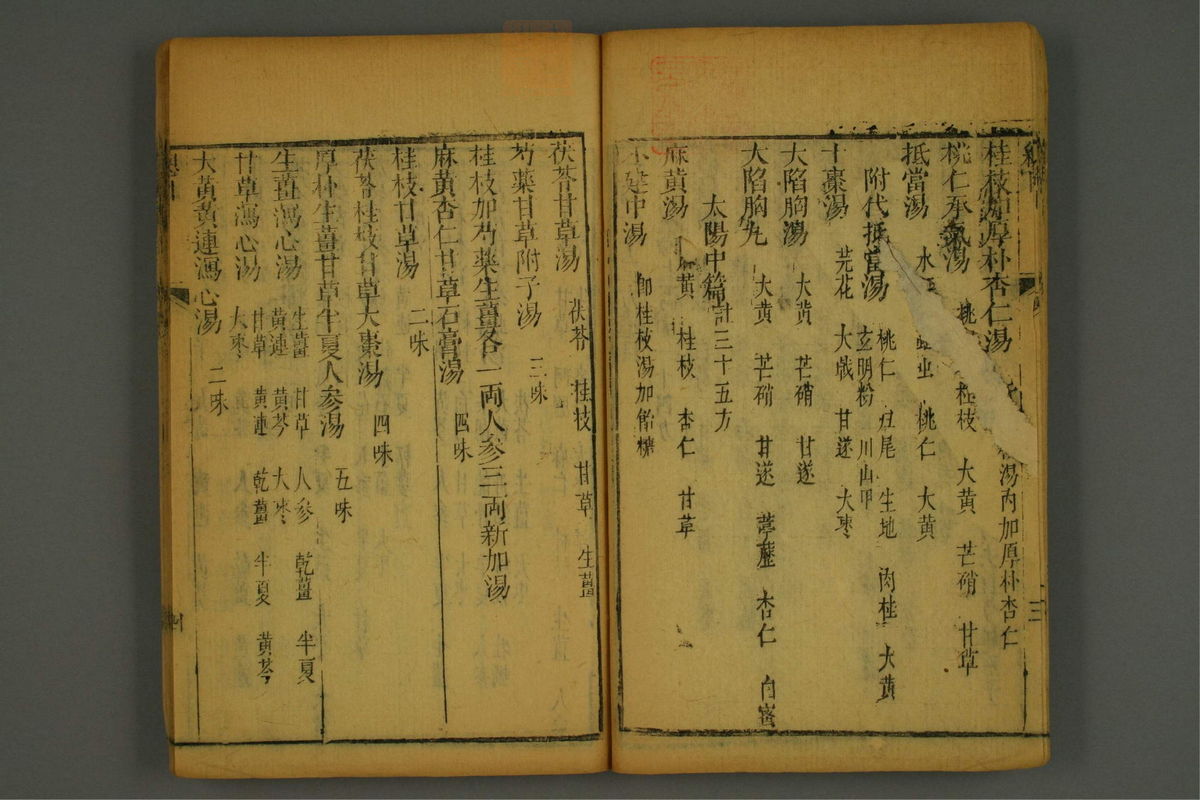 桂枝加厚朴杏仁湯 湯內加厚朴杏仁
桃仁承氣湯 桃 桂枝 大黃 芒硝 甘草
抵當湯 水 虻虫 桃仁 大黃
附代抵當湯 桃仁 歸尾 生地 肉桂 大黃
玄明粉 川山甲
十棗湯 芫花 大戟 甘遂 大枣
大陷胸湯 大黃 芒硝 甘遂
大陷胸丸 大黃 芒硝 甘遂 葶藶 杏仁 白蜜
太陽中篇計三十五方
麻黃湯 麻黃 桂枝 杏仁 甘草
小建中湯 卽桂枝湯加飴糖
茯苓甘草湯 茯苓 桂枝 甘草 生薑
芍藥甘草附子湯 三味
桂枝加芍藥生薑各一両人參三両新加湯
麻黃杏仁甘草石膏湯 四味
桂枝甘草湯 二味
茯苓桂枝甘草大棗湯 四味
厚朴生薑甘草半夏人參湯 五味
生薑瀉心湯 生薑 甘草 人參 乾薑 半夏
黃連 黃芩 大枣
甘草瀉心湯 甘草 黃連 乾薑 半夏 黃芩
大枣
大黃黃連瀉心湯 二味